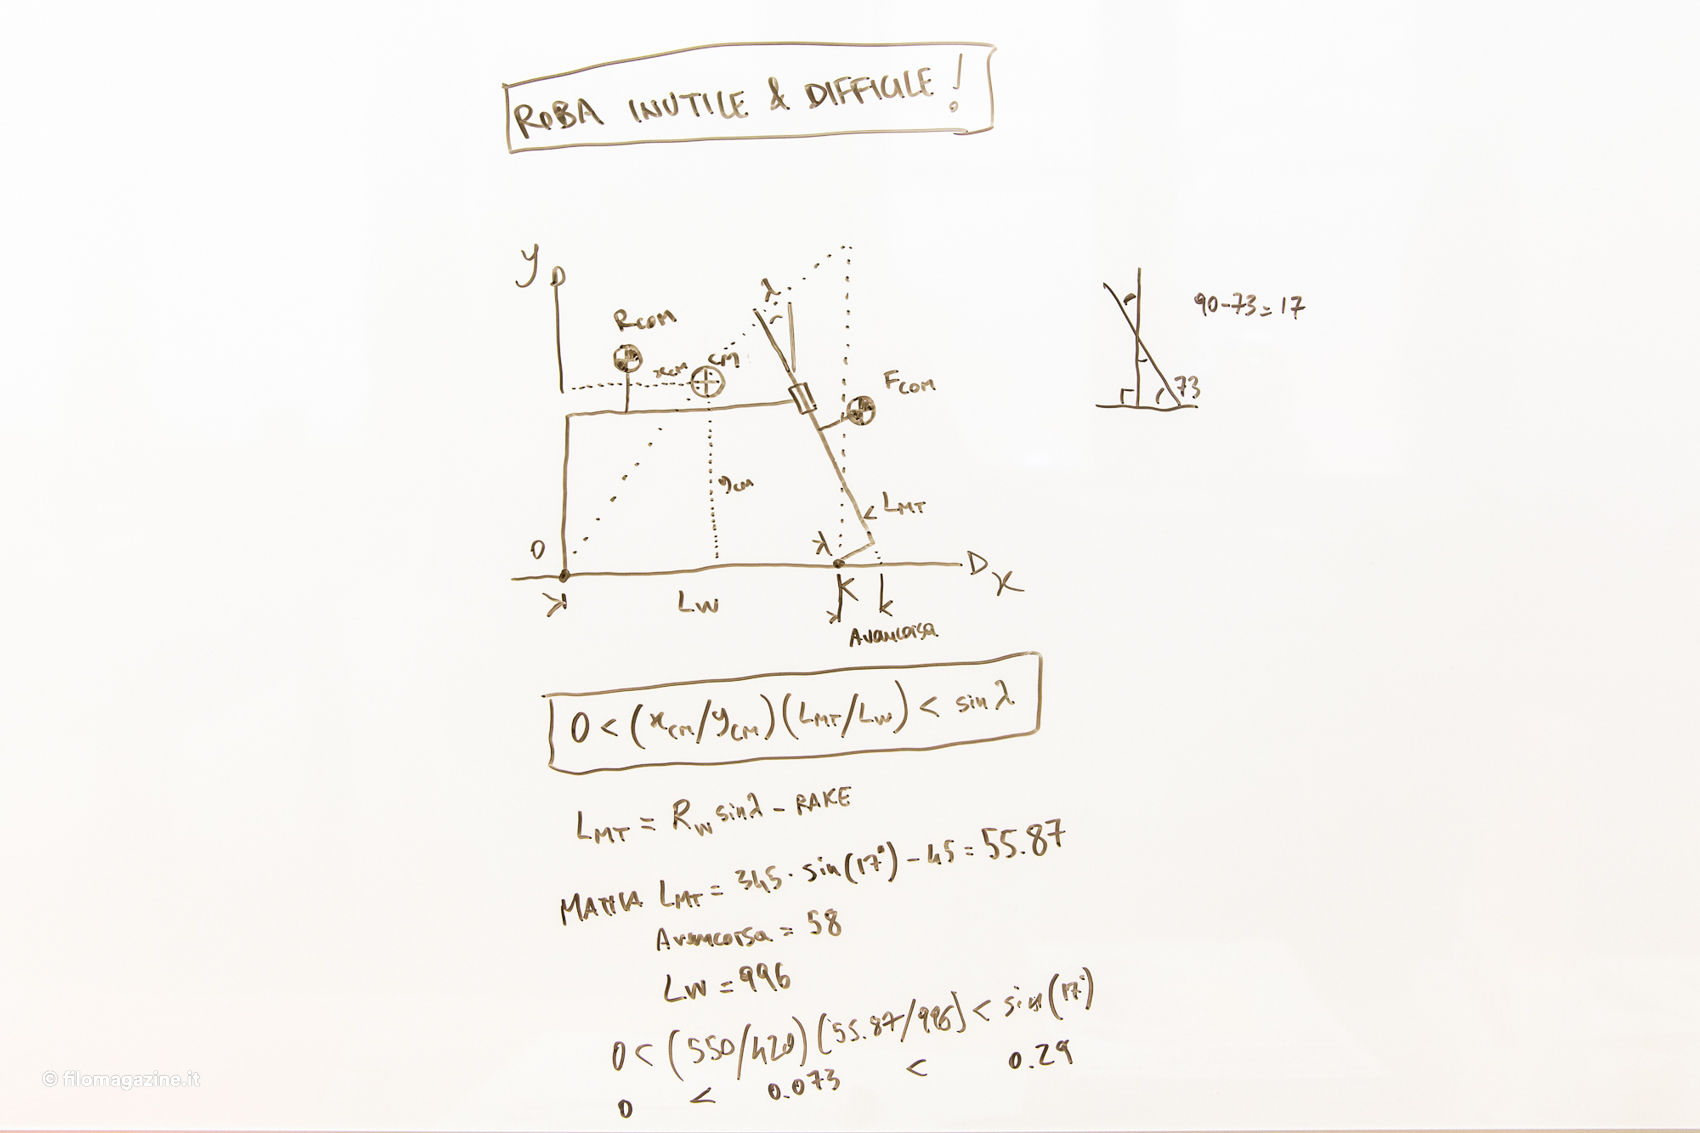 ROBA INUTILE & DIFFICILE!
y
λ
RCOM
xCM
CM
FCOM
90-73=17
73
yCM
LMT
0
λ
x
LW
K
k
Avancorsa
0 < (xCM/yCM)(LMT/LW) < sin λ
LMT = RW sinλ - RAKE
LMT = 345 · sin(17°) - 45 = 55.87
Avancorsa = 58
LW = 996
0 < (550/420)(55.87/996) < sin(17°)
0 < 0.073 < 0.29
© filomagazine.it